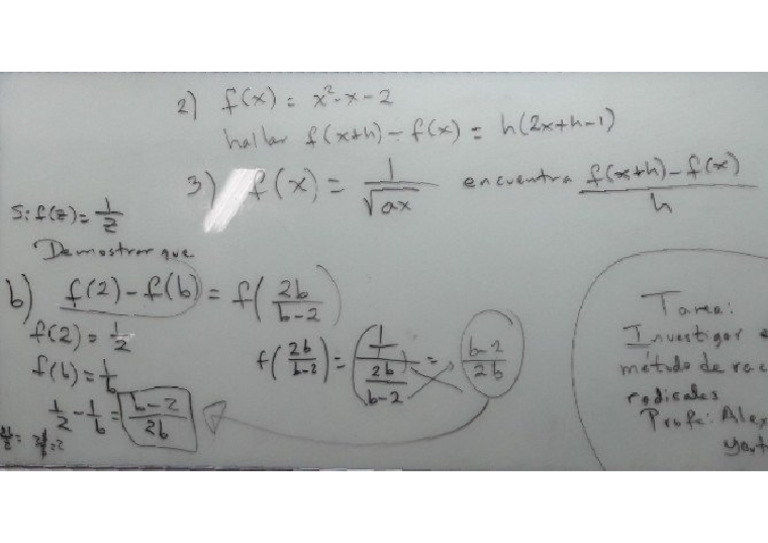 2) f(x) = x²-x-2
hallar f(x+h) - f(x) = h(2x+h-1)
3) f(x) = 1/√ax encuentra f(x+h) - f(x)/h
Si f(z) = 1/z
Demostrar que
b) f(2) - f(b) = f(2b/b-2)
f(2) = 1/2
f(b) = 1/b
1/2 - 1/b = b-2/2b
f(2b/b-2) = (1/(2b/b-2)) = b-2/2b
Tarea:
Investigar
método de
radicales
Profe: